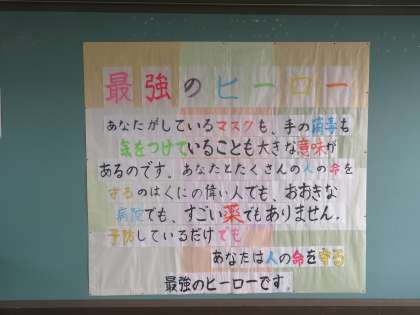 最強のヒーロー
あなたがしているマスクも、手の消毒も
気をつけていることも大きな意味が
あるのです。あなたとたくさんの人の命を
守るのはくにの偉い人でも、おおきな
病院でも、すごい薬でもありません。
予防しているだけでも
あなたは人の命を守る
最強のヒーローです。